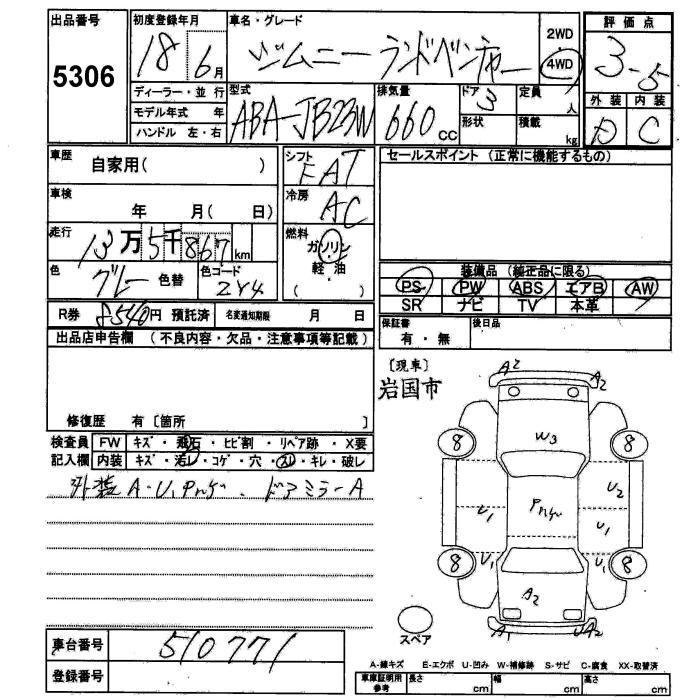 出品番号 初度登録年月 車名・グレード 評価点
5306 18年 6月 ジムニー ランドベンチャー 2WD 4WD 3.5
ディーラー・並行 型式 排気量 ドア 定員 外装 内装
モデル年式 年 ABA-JB23W 660cc 3 人 D C
ハンドル 左・右 形状 積載 kg
車歴 自家用( ) シフト FAT セールスポイント (正常に機能するもの)
車検 年 月( 日) 冷房 AC
走行 13万5千867km 燃料 ガソリン
軽・油
( )
色 グレー 色替 色コード ZY4
装備品 (純正品に限る)
PS PW ABS エアB AW
SR ナビ TV 本革
R券 8540円 預託済 名変通知期限 月 日
保証書 有・無 後日品
出品店申告欄 (不良内容・欠品・注意事項等記載)
[現車]
岩国市
修復歴 有 [箇所 ]
検査員 FW キズ・飛石・ヒビ割・リペア跡・X要
記入欄 内装 キズ・汚レ・コゲ・穴・スレ・キレ・破レ
外装 A・U、Pあせ、ドアミラーA
A2 A2
W3
8 8
U1 Pあせ U2
U1
8 U1 U1 8
A2
A1 UA2
スペア
車台番号 510771
登録番号
A-線キズ E-エクボ U-凹み W-補修跡 S-サビ C-腐食 XX-取替済
車庫証明用参考 長さ cm 幅 cm 高さ cm